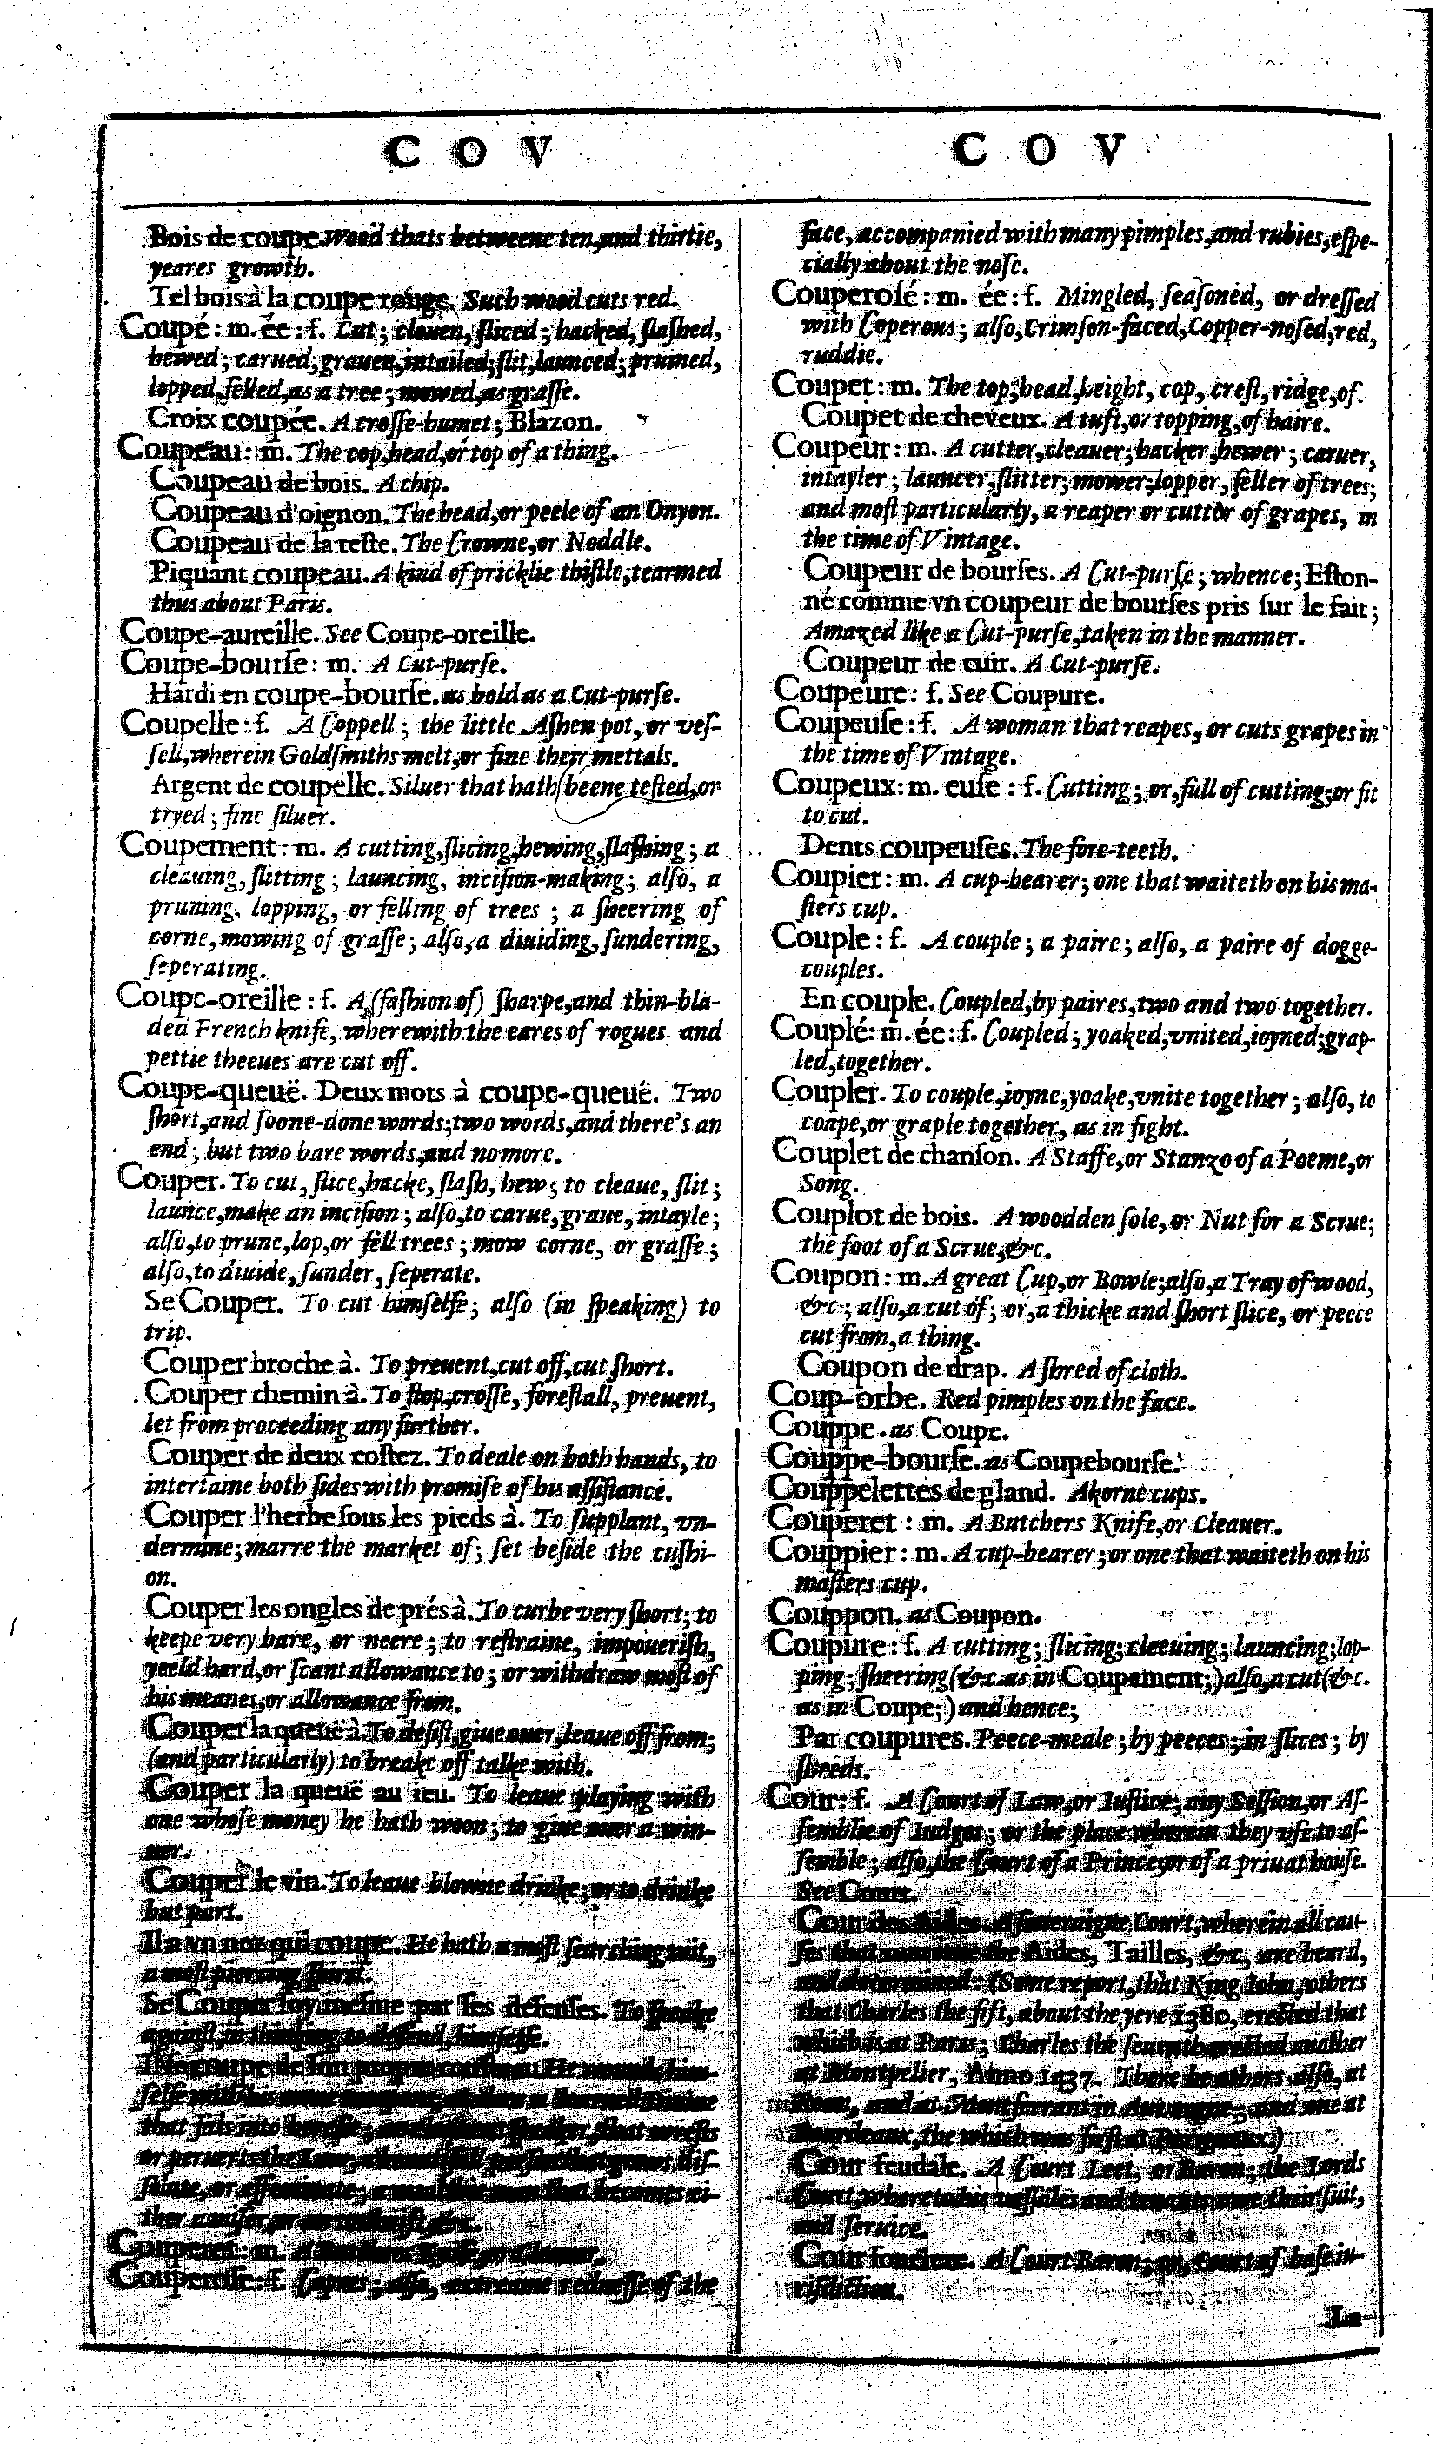 COV
COV
Bois de coupe. Wood thats betweene ten, and thirtie,
yeares growth.
Tel bois à la coupe rouge. Such wood cuts red.
Coupé: m. ée: f. Cut; clouen, ſliced; hacked, ſlaſhed,
hewed; carued, grauen, intailed; ſlit, launced; pruined,
lopped, felled, as a tree; mowed, as graſſe.
Croix coupée. A croſſe-humet; Blazon.
Coupeau: m. The cop, head, or top of a thing.
Coupeau de bois. A chip.
Coupeau d'oignon. The head, or peele of an Onyon.
Coupeau de la teſte. The Crowne, or Noddle.
Piquant coupeau. A kind of pricklie thiſtle, tearmed
thus about Paris.
Coupe-aureille. See Coupe-oreille.
Coupe-bourſe: m. A Cut-purſe.
Hardi en coupe-bourſe. as bold as a Cut-purſe.
Coupelle: f. A Coppell; the little Aſhen pot, or veſ-
ſell, wherein Goldſmiths melt, or fine their mettals.
Argent de coupelle. Siluer that hath beene teſted, or
tryed; fine ſiluer.
Coupement: m. A cutting, ſlicing, hewing, ſlaſhing; a
cleauing, ſlitting; launcing, inciſion-making; alſo, a
pruning, lopping, or felling of trees; a ſheering of
corne, mowing of graſſe; alſo, a diuiding, ſundering,
ſeperating.
Coupe-oreille: f. A (faſhion of) ſharpe, and thin-bla-
ded French knife, wherewith the eares of rogues and
pettie theeues are cut off.
Coupe-queuë. Deux mots à coupe-queuë. Two
ſhort, and ſoone-done words; two words, and there's an
end; but two bare words, and no more.
Couper. To cut, ſlice, hacke, ſlaſh, hew; to cleaue, ſlit;
launce, make an inciſion; alſo, to carue, graue, intayle;
alſo, to prune, lop, or fell trees; mow corne, or graſſe;
alſo, to diuide, ſunder, ſeperate.
Se Couper. To cut himſelfe; alſo (in ſpeaking) to
trip.
Couper broche à. To preuent, cut off, cut ſhort.
Couper chemin à. To ſtop, croſſe, foreſtall, preuent,
let from proceeding any further.
Couper de deux coſtez. To deale on both hands, to
intertaine both ſides with promiſe of his aſſiſtance.
Couper l'herbe ſous les pieds à. To ſupplant, vn-
dermine; marre the market of; ſet beſide the cuſhi-
on.
Couper les ongles de prés à. To curbe very ſhort; to
keepe very bare, or neere; to reſtraine, impoueriſh,
yeeld hard, or ſcant allowance to; or withdraw moſt of
his meanes, or allowance from.
Couper la queuë à. To deſiſt, giue ouer, leaue off from;
(and particularly) to breake off talke with.
Couper la queuë au ieu. To leaue playing with
one whoſe money he hath woon; to giue ouer a win-
ner.
Couper le vin. To leaue blowne drinke; or to drinke
but part.
Il a vn nez qui coupe. He hath a moſt ſearching wit,
a moſt
Se Couper ſoy meſme par ſes défenſes. To ſpeake
againſt, in thinking to defend, himſelfe.
that wreſts
or peruerts the Law, diſ-
ſolute, or effeminate; that becomes ei-
ther
Couperet: m. A Butchers Knife, or Cleauer.
Couperoſe: f. Copres; alſo, extreame redneſſe of the
face, accompanied with many pimples, and rubies, eſpe-
cially about the noſe.
Couperoſé: m. ée: f. Mingled, ſeaſoned, or dreſſed
with Coperous; alſo, Crimſon-faced, Copper-noſed, red,
ruddie.
Coupet: m. The top, head, height, cop, creſt, ridge, of.
Coupet de cheveux. A tuft, or topping, of haire.
Coupeur: m. A cutter, cleauer, hacker, hewer; caruer,
intayler; launcer, ſlitter; mower; lopper, feller of trees;
and moſt particularly, a reaper or cuttor of grapes, in
the time of Vintage.
Coupeur de bourſes. A Cut-purſe; whence; Eſton-
né comme vn coupeur de bourſes pris ſur le fait;
Amazed like a Cut-purſe, taken in the manner.
Coupeur de cuir. A Cut-purſe.
Coupeure: f. See Coupure.
Coupeuſe: f. A woman that reapes, or cuts grapes in
the time of Vintage.
Coupeux: m. euſe: f. Cutting; or, full of cutting; or fit
to cut.
Dents coupeuſes. The fore-teeth.
Coupier: m. A cup-bearer; one that waiteth on his ma-
ſters cup.
Couple: f. A couple; a paire; alſo, a paire of dogge-
couples.
En couple. Coupled, by paires, two and two together.
Couplé: m. ée: f. Coupled; yoaked, vnited, ioyned; grap-
led, together.
Coupler. To couple, ioyne, yoake, vnite together; alſo, to
coape, or graple together, as in fight.
Couplet de chanſon. A Staffe, or Stanzo of a Poeme, or
Song.
Couplot de bois. A woodden ſole, or Nut for a Scrue;
the foot of a Scrue, &c.
Coupon: m. A great Cup, or Bowle; alſo, a Tray of wood,
&c; alſo, a cut of; or, a thicke and ſhort ſlice, or peece
cut from, a thing.
Coupon de drap. A ſhred of cloth.
Coup-orbe. Red pimples on the face.
Couppe. as Coupe.
Couppe-bourſe. as Coupebourſe.
Couppelettes de gland. Akorne cups.
Couperet: m. A Butchers Knife, or Cleauer.
Couppier: m. A cup-bearer; or one that waiteth on his
maſters cup.
Couppon. as Coupon.
Coupure: f. A cutting; ſlicing; cleeuing; launcing; lop-
ping; ſheering (&c. as in Coupement;) alſo, a cut (&c.
as in Coupe;) and hence;
Par coupures. Peece-meale; by peeces; in ſlices; by
ſhreds.
Cour: f. A Court of Law, or Iuſtice; any Seſſion, or Aſ-
ſemblie of Iudges; or the place wherein they vſe to aſ-
ſemble; alſo, the Court of a Prince, or of a priuat houſe.
See Court.
Cour des Aides. A ſoueraigne Court, wherein all cau-
ſes that concerne the Aides, Tailles, &c, are heard,
and determined: (Some report, that King Iohn, others
that Charles the fift, about the yere 1380, erected that
which is at Paris; Charles the ſeuenth erected another
at Montpelier, Anno 1437. There be others, alſo, at
Roan, and at Montferrant in Auuergne; and one at
Bourdeaux, the which was firſt at Perigueux.)
Cour feudale. A Court Leet, or Baron; the Lords
Court, whereto his vaſſales and tenants owe their ſuit,
and ſeruice.
Cour fonciere. A Court Baron; or, Court of baſe iu-
riſdiction.
La